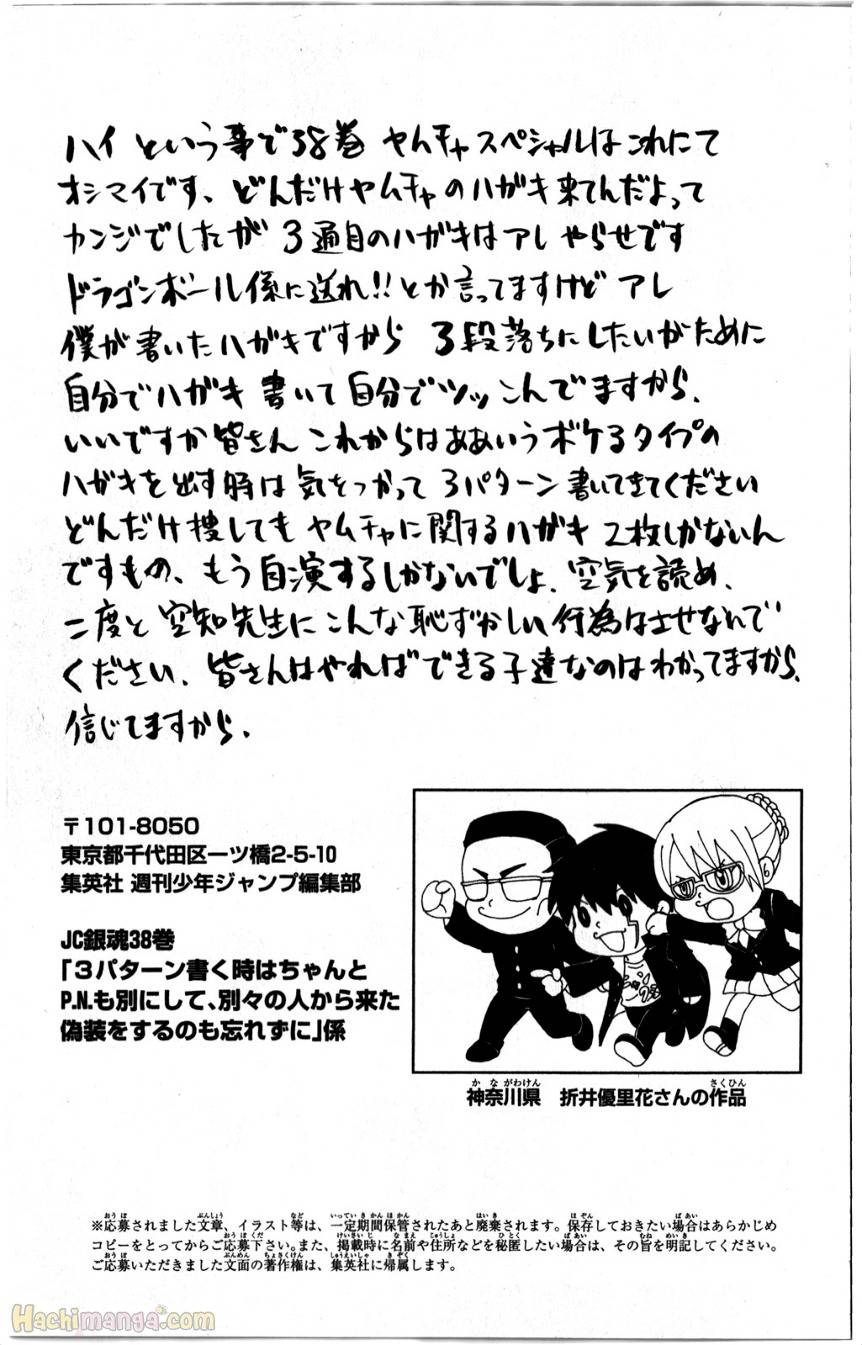 ハイ という事で38巻 ヤムチャスペシャルはこれにて
オシマイです、どんだけヤムチャのハガキ来てんだよって
カンジでしたが 3通目のハガキはアレ やらせです
ドラゴンボール係に送れ!!とか言ってますけど アレ
僕が書いたハガキですから 3段落ちにしたいがために
自分でハガキ 書いて自分でツッこんでますから、
いいですか皆さん これからはああいうボケるタイプの
ハガキを出す時は気をつかって 3パターン書いてきてください
どんだけ捜しても ヤムチャに関するハガキ 2枚しかないん
ですもの、もう自演するしかないでしょ、空気を読め、
二度と空知先生にこんな恥ずかしい行為はさせないで
ください、皆さんはやればできる子達なのはわかってますから、
信じてますから、
〒101-8050
東京都千代田区一ツ橋2-5-10
集英社 週刊少年ジャンプ編集部
JC銀魂38巻
「3パターン書く時はちゃんと
P.N.も別にして、別々の人から来た
偽装をするのも忘れずに」係
神奈川県 折井優里花さんの作品
※応募されました文章、イラスト等は、一定期間保管されたあと廃棄されます。保存しておきたい場合はあらかじめ
コピーをとってからご応募下さい。また、掲載時に名前や住所などを秘匿したい場合は、その旨を明記してください。
ご応募いただきました文面の著作権は、集英社に帰属します。
Hachimanga.com